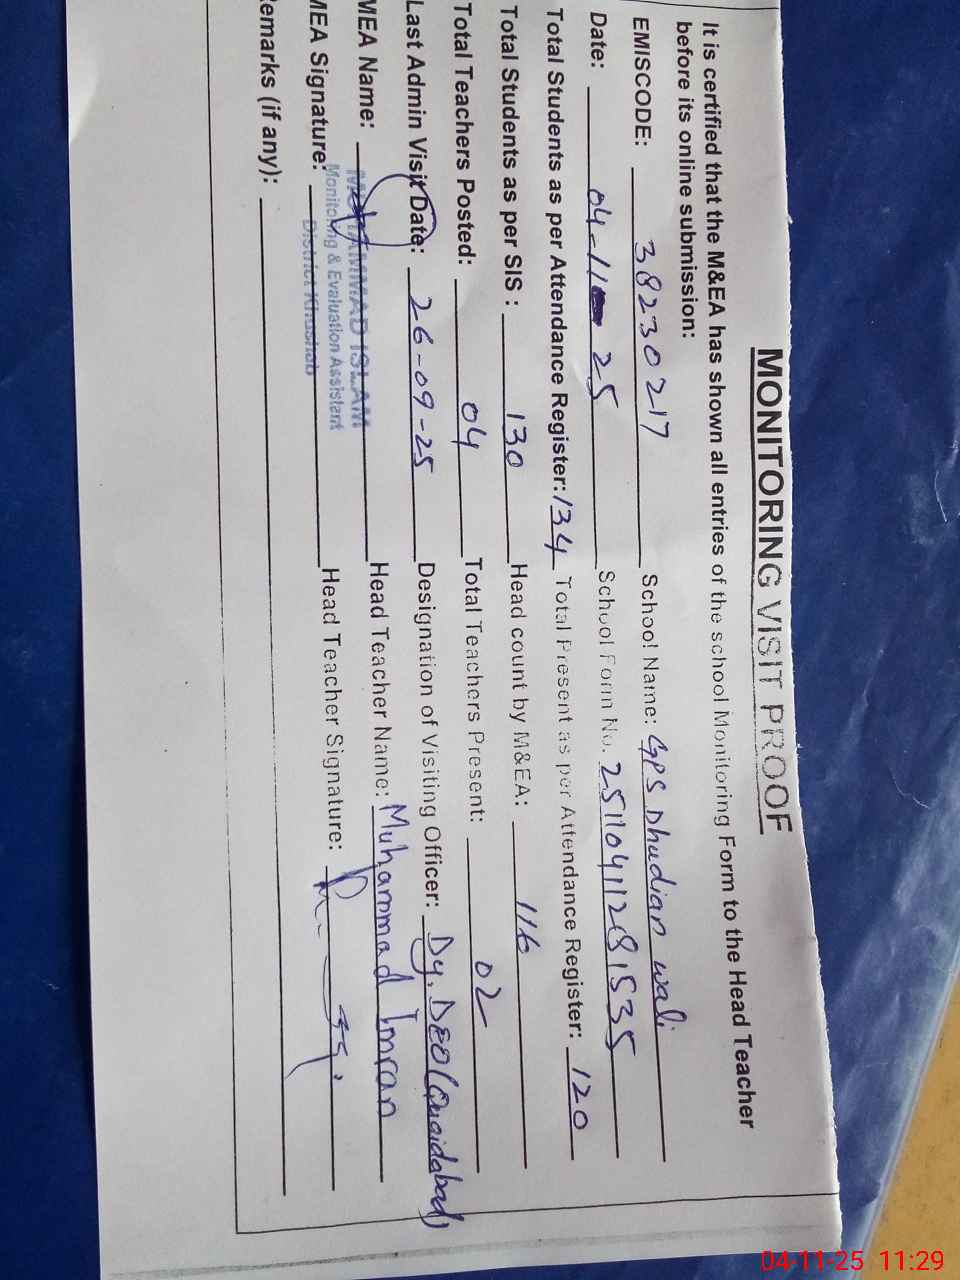 MONITORING VISIT PROOF
It is certified that the M&EA has shown all entries of the school Monitoring Form to the Head Teacher
before its online submission:
EMISCODE: 38230217 School Name: GPS Dhudian wali
Date: 04-11-25 School Form No. 25110411281535
Total Students as per Attendance Register: 134 Total Present as per Attendance Register: 120
Total Students as per SIS : 130 Head count by M&EA: 116
Total Teachers Posted: 04 Total Teachers Present: 02
Last Admin Visit Date: 26-09-25 Designation of Visiting Officer: Dy. DEO (Quaidabad)
MEA Name: MUHAMMAD ISLAM Head Teacher Name: Muhammad Imran
Monitoring & Evaluation Assistant
MEA Signature: District Khushab Head Teacher Signature:
emarks (if any):
04-11-25 11:29